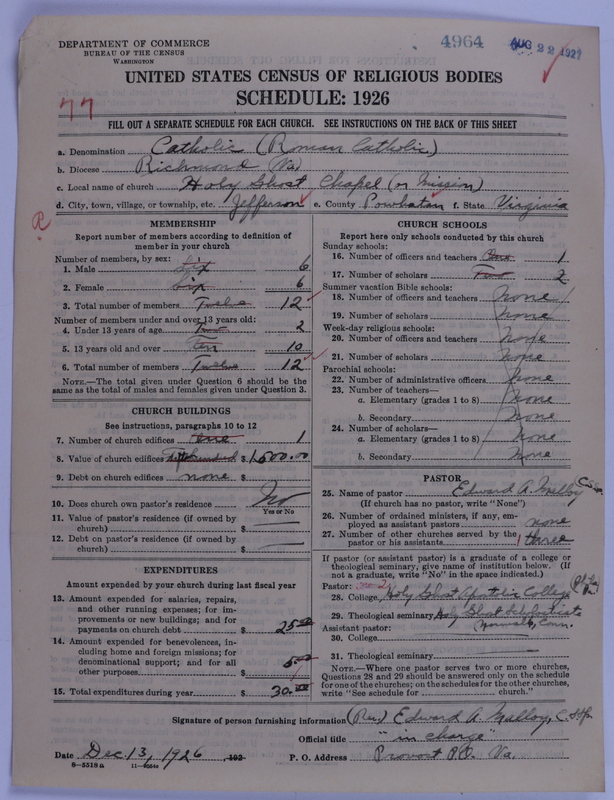 DEPARTMENT OF COMMERCE
BUREAU OF THE CENSUS
WASHINGTON
4964
AUG 22 1927
UNITED STATES CENSUS OF RELIGIOUS BODIES
SCHEDULE: 1926
77
FILL OUT A SEPARATE SCHEDULE FOR EACH CHURCH. SEE INSTRUCTIONS ON THE BACK OF THIS SHEET
a. Denomination Catholic (Roman Catholic)
b. Diocese Richmond (Va)
c. Local name of church Holy Ghost Chapel (or Mission)
d. City, town, village, or township, etc. Jefferson e. County Powhatan f. State Virginia
R
MEMBERSHIP
Report number of members according to definition of
member in your church
Number of members, by sex:
1. Male Six 6
2. Female Six 6
3. Total number of members Twelve 12
Number of members under and over 13 years old:
4. Under 13 years of age Two 2
5. 13 years old and over Ten 10
6. Total number of members Twelve 12
NOTE.—The total given under Question 6 should be
same as the total of males and females given under Question 3.
CHURCH BUILDINGS
See instructions, paragraphs 10 to 12
7. Number of church edifices One 1
8. Value of church edifices $ 1,500.00
9. Debt on church edifices none $
10. Does church own pastor's residence No
Yes or No
11. Value of pastor's residence (if owned by
church) $
12. Debt on pastor's residence (if owned by
church) $
EXPENDITURES
Amount expended by your church during last fiscal year
13. Amount expended for salaries, repairs,
and other running expenses; for im-
provements or new buildings; and for
payments on church debt $ 25.00
14. Amount expended for benevolences, in-
cluding home and foreign missions; for
denominational support; and for all
other purposes $ 5.00
15. Total expenditures during year $ 30.00
CHURCH SCHOOLS
Report here only schools conducted by this church
Sunday schools:
16. Number of officers and teachers One 1
17. Number of scholars Two 2
Summer vacation Bible schools:
18. Number of officers and teachers None
19. Number of scholars None
Week-day religious schools:
20. Number of officers and teachers None
21. Number of scholars None
Parochial schools:
22. Number of administrative officers None
23. Number of teachers—
a. Elementary (grades 1 to 8) None
b. Secondary None
24. Number of scholars—
a. Elementary (grades 1 to 8) None
b. Secondary None
PASTOR
25. Name of pastor Edward A. Malloy CSSp
(If church has no pastor, write "None")
26. Number of ordained ministers, if any, em-
ployed as assistant pastors none
27. Number of other churches served by the
pastor or his assistants three
If pastor (or assistant pastor) is a graduate of a college or
theological seminary, give name of institution below. (If
not a graduate, write "No" in the space indicated.)
Pastor:
28. College Holy Ghost Apostolic College
29. Theological seminary Holy Ghost
Assistant pastor: Norwalk, Conn.
30. College
31. Theological seminary
NOTE.—Where one pastor serves two or more churches,
Questions 28 and 29 should be answered only on the schedule
for one of the churches; on the schedules for the other churches,
write "See schedule for church."
Signature of person furnishing information (Rev.) Edward A. Malloy, C.S.Sp.
Official title "in charge"
Date Dec 13, 1926, 192 P. O. Address Provost P.O. Va.
8—5518a